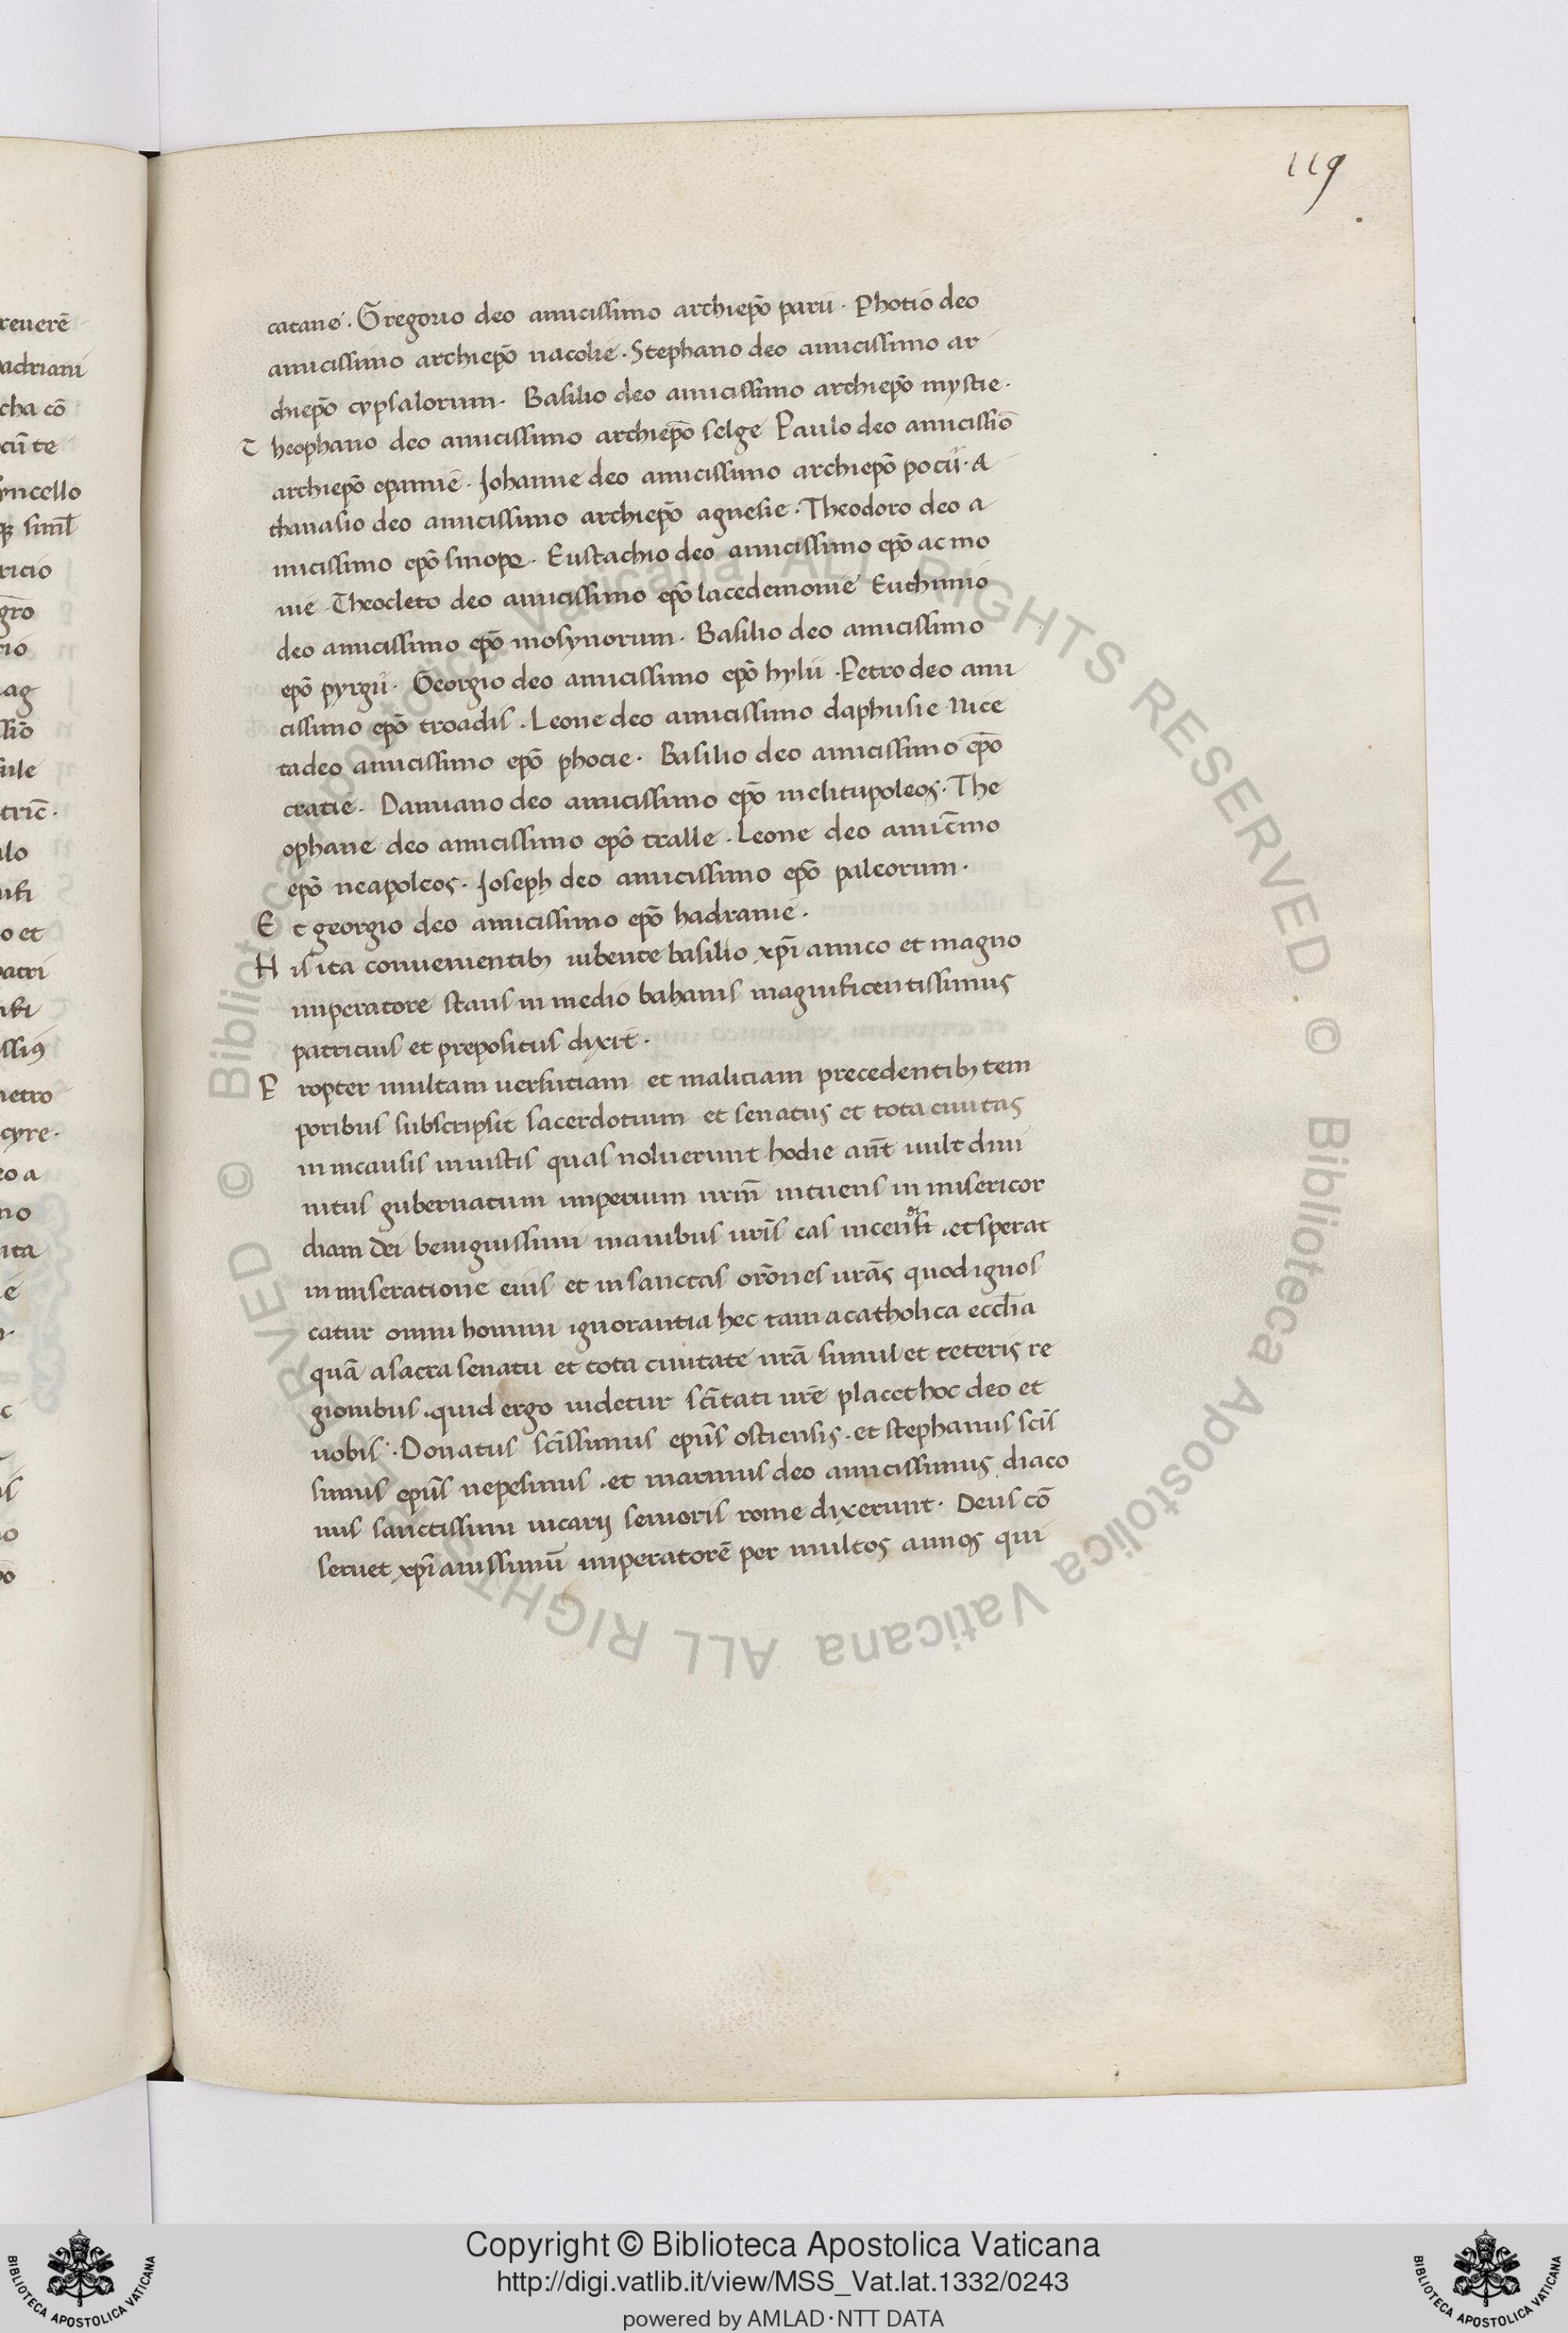 119
catane. Gregorio deo amicissimo archiepō parii. Photio deo
amicissimo archiepō nacolie. Stephano deo amicissimo ar
chiepō cypsalorum. Basilio deo amicissimo archiepō mystie.
Theophano deo amicissimo archiepō selge Paulo deo amicissiō
archiepō epamie. Iohanne deo amicissimo archiepō pocii. A
thanasio deo amicissimo archiepō agnesie. Theodoro deo a
micissimo epō sinope. Eustachio deo amicissimo epō acmo
nie Theocleto deo amicissimo epō lacedemonie Euthimio
deo amicissimo epō mosynorum. Basilio deo amicissimo
epō pyrgii. Georgio deo amicissimo epō hylii. Petro deo ami
cissimo epō troadis. Leone deo amicissimo daphusie Nice
ta deo amicissimo epō phocie. Basilio deo amicissimo epō
cratie. Damiano deo amicissimo epō melitupoleos. The
ophane deo amicissimo epō tralle. Leone deo amic̄mo
epō neapoleos. Ioseph deo amicissimo epō paleorum.
Et georgio deo amicissimo epō hadranie.
His ita convenientibȝ iubente basilio xp̄i amico et magno
imperatore stans in medio bahanis magnificentissimus
patricius et prepositus dixit.
Propter multam uersutiam et maliciam precedentibȝ tem
poribus subscripsit sacerdotium et senatus et tota ciuitas
in incausis iniustis quas noluerunt hodie aūt uult diui
nitus gubernatum imperium ur̄m intuens in misericor
diam dei benignissimi manibus ur̄is eas et sperat
in miseratione eius et in sanctas or̄ones ur̄as quod ignos
catur omni homini ignorantia hec tam a catholica eccl̄ia
quā a sacra senatu et tota ciuitate ur̄a simul et ceteris re
gionibus. quid ergo uidetur sc̄itati ur̄e placet hoc deo et
uobis. Donatus sc̄issimus ep̄us ostiensis. et stephanus sc̄is
simus ep̄us nepesinus. et marinus deo amicissimus diaco
nus sanctissimi uicarij senioris rome dixerunt. Deus cō
seruet xp̄ianissimū imperatorē per multos annos qui
Copyright © Biblioteca Apostolica Vaticana
http://digi.vatlib.it/view/MSS_Vat.lat.1332/0243
powered by AMLAD·NTT DATA